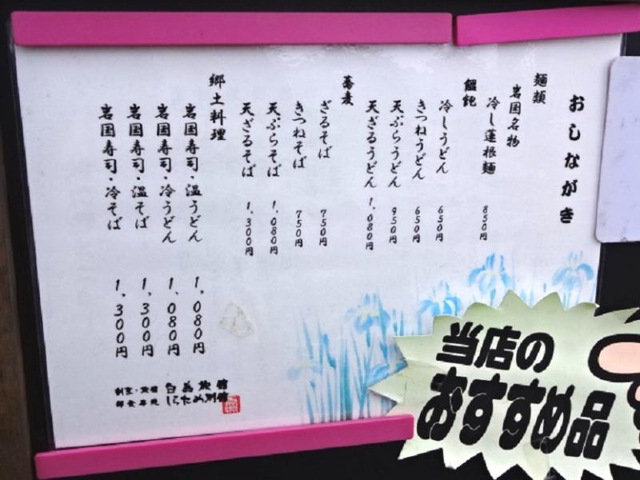 おしながき
麺類
岩国名物
冷し蓮根麺 850円
饂飩
冷しうどん 650円
きつねうどん 650円
天ぷらうどん 950円
天ざるうどん 1,080円
蕎麦
ざるそば 750円
きつねそば 750円
天ぷらそば 1,080円
天ざるそば 1,300円
郷土料理
岩国寿司・温うどん 1,080円
岩国寿司・冷うどん 1,080円
岩国寿司・温そば 1,300円
岩国寿司・冷そば 1,300円
白為旅館
しらため別館
当店の
おすすめ品